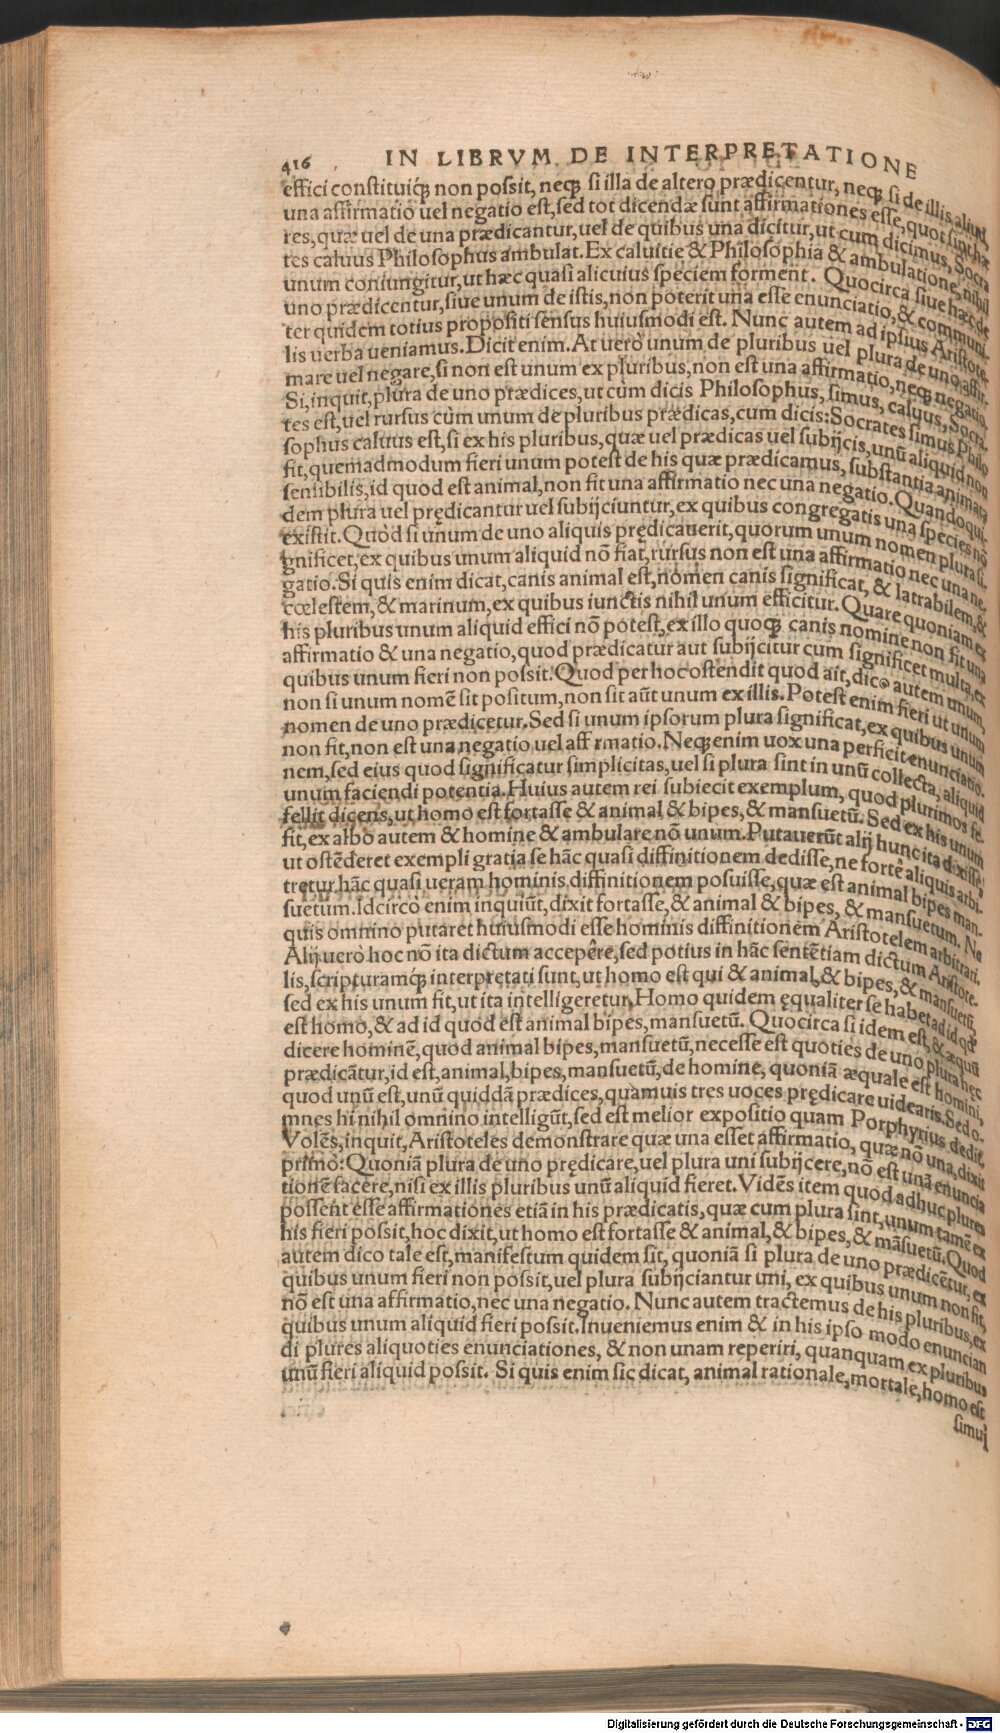 416 IN LIBRVM DE INTERPRETATIONE
effici constituiq́; non possit, neq; si illa de altero prædicentur, neq; si de illis aliud,
una affirmatio uel negatio est, sed tot dicendæ sunt affirmationes esse, quot sint hæ
res, quæ uel de una prædicantur, uel de quibus una dicitur, ut cum dicimus, Socra
tes caluus Philosophus ambulat. Ex caluitie & Philosophia & ambulatione, nihil
unum coniungitur, ut hæc quasi alicuius speciem forment. Quocirca siue hæc de
uno prædicentur, siue unum de istis, non poterit una esse enunciatio, & communi-
ter quidem totius propositi sensus huiusmodi est. Nunc autem ad ipsius Aristote-
lis uerba ueniamus. Dicit enim. At uerò unum de pluribus uel plura de uno affir-
mare uel negare, si non est unum ex pluribus, non est una affirmatio, neq; negatio,
Si, inquit, plura de uno prædices, ut cùm dicis Philosophus, simus, caluus, Socra-
tes est, uel rursus cùm unum de pluribus prædicas, cum dicis: Socrates simus Philo
sophus caluus est, si ex his pluribus, quæ uel prædicas uel subijcis, unū aliquid non
fit, quemadmodum fieri unum potest de his quæ prædicamus, substantia animata
sensibilis, id quod est animal, non fit una affirmatio nec una negatio. Quandoqui-
dem plura uel prędicantur uel subijciuntur, ex quibus congregatis una species nō
existit. Quòd si unum de uno aliquis prędicauerit, quorum unum nomen plura si-
gnificet, ex quibus unum aliquid nō fiat, rursus non est una affirmatio nec una ne-
gatio. Si quis enim dicat, canis animal est, nomen canis significat, & latrabilem, &
cœlestem, & marinum, ex quibus iunctis nihil unum efficitur. Quare quoniam ex
his pluribus unum aliquid effici nō potest, ex illo quoq; canis nomine non fit una
affirmatio & una negatio, quod prædicatur aut subijcitur cum significet multa, ex
quibus unum fieri non possit. Quod per hoc ostendit quod ait, dico autem unum,
non si unum nomē sit positum, non sit aūt unum ex illis. Potest enim fieri ut unum
nomen de uno prædicetur. Sed si unum ipsorum plura significat, ex quibus unum
non fit, non est una negatio uel aff rmatio. Neq; enim uox una perficit enunciatio-
nem, sed eius quod significatur simplicitas, uel si plura sint in unū collecta, aliquid
unum faciendi potentia. Huius autem rei subiecit exemplum, quod plurimos fe-
fellit dicens, ut homo est fortasse & animal & bipes, & mansuetū. Sed ex his unum
fit, ex albo autem & homine & ambulare nō unum. Putauerūt alij hunc ita dixisse,
ut ostēderet exempli gratia se hāc quasi diffinitionem dedisse, ne fortè aliquis arbi-
tretur hāc quasi ueram hominis diffinitionem posuisse, quæ est animal bipes man-
suetum. Idcircò enim inquiūt, dixit fortasse, & animal & bipes, & mansuetum. Ne
quis omnino putaret huiusmodi esse hominis diffinitionem Aristotelem arbitrari.
Alij uerò hoc nō ita dictum accepêre, sed potius in hāc sentētiam dictum Aristote-
lis, scripturamq́; interpretati sunt, ut homo est qui & animal, & bipes, & mansuetū,
sed ex his unum fit, ut ita intelligeretur, Homo quidem ęqualiter se habet ad id qđ
est homo, & ad id quod est animal bipes, mansuetū. Quocirca si idem est, & æquū
dicere hominē, quod animal bipes, mansuetū, necesse est quoties de uno plura hęc
prædicātur, id est, animal, bipes, mansuetū, de homine, quoniā æquale est homini,
quod unū est, unū quiddā prædices, quàmuis tres uoces prędicare uidearis. Sed o-
mnes hi nihil omnino intelligūt, sed est melior expositio quam Porphyrius dedit,
Volēs, inquit, Aristoteles demonstrare quæ una esset affirmatio, quæ nō una, dixit
primò: Quoniā plura de uno prędicare, uel plura uni subijcere, nō est unā enuncia
tionē facere, nisi ex illis pluribus unū aliquid fieret. Vidēs item quod adhuc plures
possent esse affirmationes etiā in his prædicatis, quæ cum plura sint, unum tamē ex
his fieri possit, hoc dixit, ut homo est fortasse & animal, & bipes, & māsuetū. Quod
autem dico tale est, manifestum quidem sit, quoniā si plura de uno prædicētur, ex
quibus unum fieri non possit, uel plura subijciantur uni, ex quibus unum non fit,
nō est una affirmatio, nec una negatio. Nunc autem tractemus de his pluribus, ex
quibus unum aliquid fieri possit. Inueniemus enim & in his ipso modo enuncian
di plures aliquoties enunciationes, & non unam reperiri, quanquam ex pluribus
unū fieri aliquid possit. Si quis enim sic dicat, animal rationale, mortale, homo est
simul
Digitalisierung gefördert durch die Deutsche Forschungsgemeinschaft - DFG